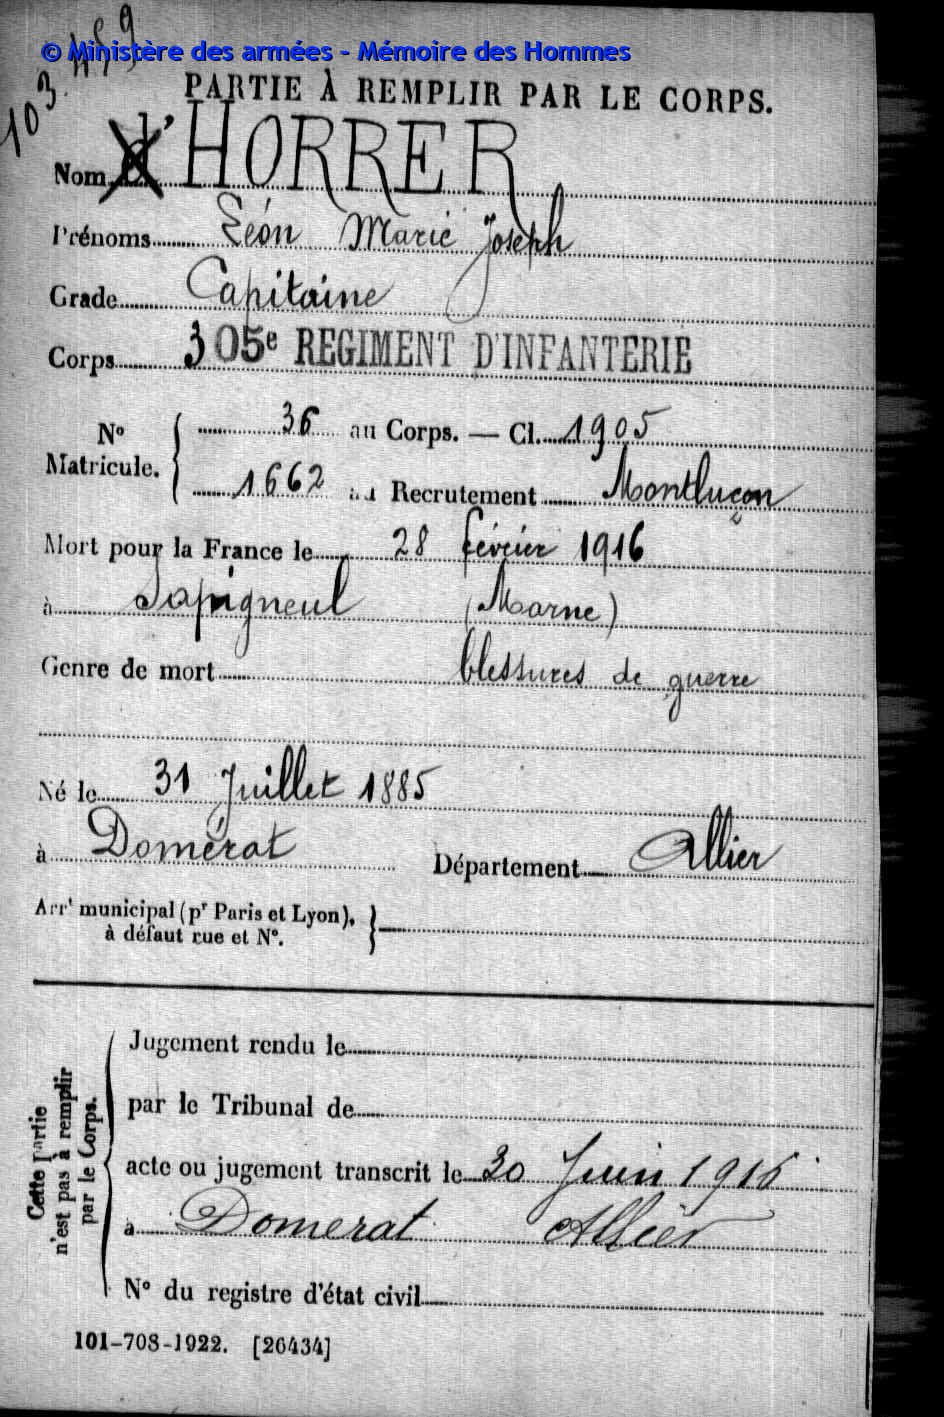 103.459
© Ministère des armées - Mémoire des Hommes
PARTIE À REMPLIR PAR LE CORPS.
Nom d'HORRER
Prénoms Léon Marie Joseph
Grade Capitaine
Corps 305e REGIMENT D'INFANTERIE
No Matricule. { 36 au Corps. — Cl. 1905
1662 au Recrutement Montluçon
Mort pour la France le 28 février 1916
à Sapigneul (Marne)
Genre de mort blessures de guerre
Né le 31 Juillet 1885
à Domérat Département Allier
Arrt municipal (pr Paris et Lyon),
à défaut rue et No.
Cette partie n'est pas à remplir par le Corps.
Jugement rendu le
par le Tribunal de
acte ou jugement transcrit le 30 Juin 1916
à Domerat Allier
No du registre d'état civil
101-708-1922. [26434]